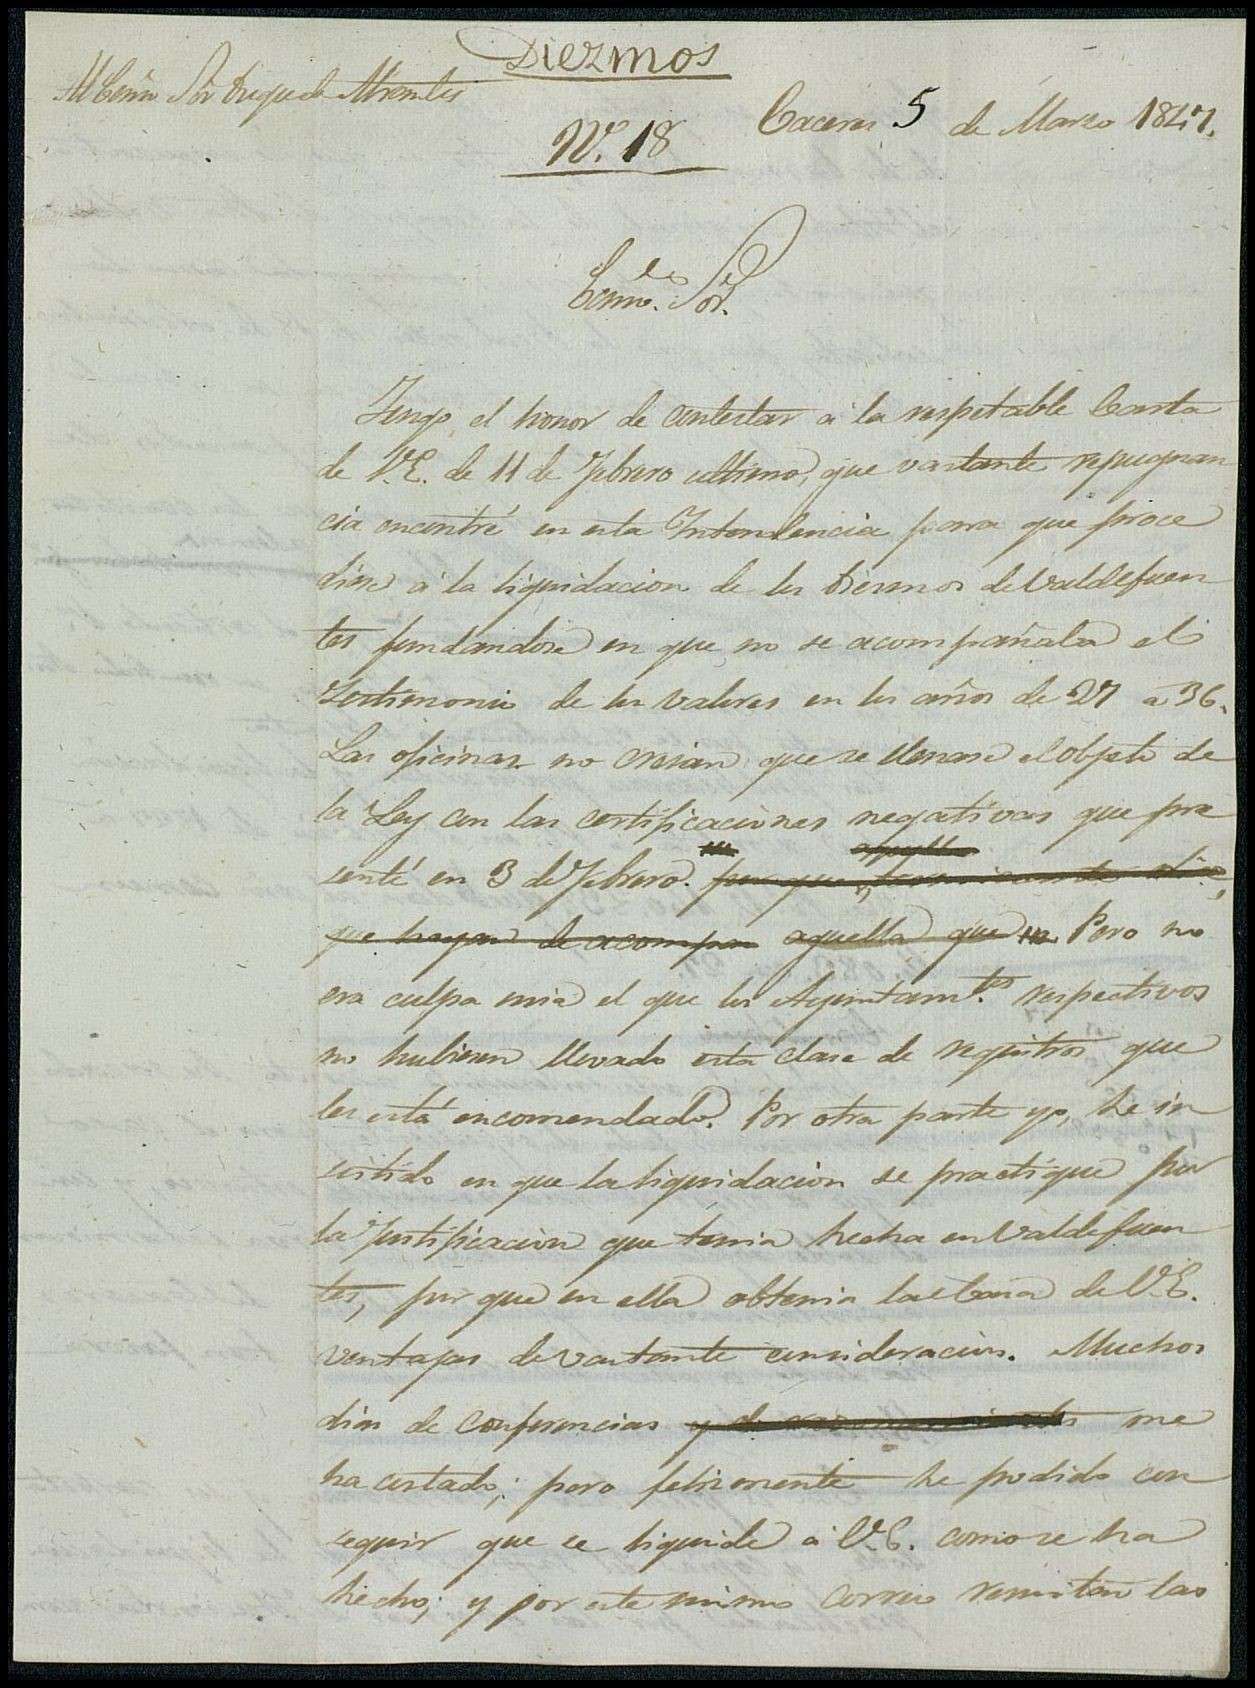 Diezmos
Al Exmo Sor Duque de Abrantes
Caceres 5 de Marzo 1847.
Nº. 18
Exmo. Sor.
Tengo el honor de contestar á la respetable Carta
de V.E. de 11 de Febrero ultimo, que vastante repugnan
cia encontré en esta Intendencia para que proce
diese á la liquidacion de los Diezmos de Valdefuen
tes fundandose en que no se acompañaba el
testimonio de los valores en los años de 27 a 36.
Las oficinas no creian que se llenase el objeto de
la Ley con las certificaciones negativas que pre
senté en 3 de Febrero. por que
que hayan de acompa aquella que no Pero no
era culpa mia el que los Ayuntamtos. respectivos
no hubiesen llevado esta clase de registros que
les está encomendado. Por otra parte yo, he in
sistido en que la liquidacion se practique por
la Justificacion que tenia hecha en Valdefuen
tes, por que en ella obtenia la Casa de V.E.
ventajas de vastante consideracion. Muchos
dias de conferencias y de me
ha costado; pero felizmente he podido con
seguir que se liquide á V.E. como se ha
hecho; y por este mismo correo remiten las